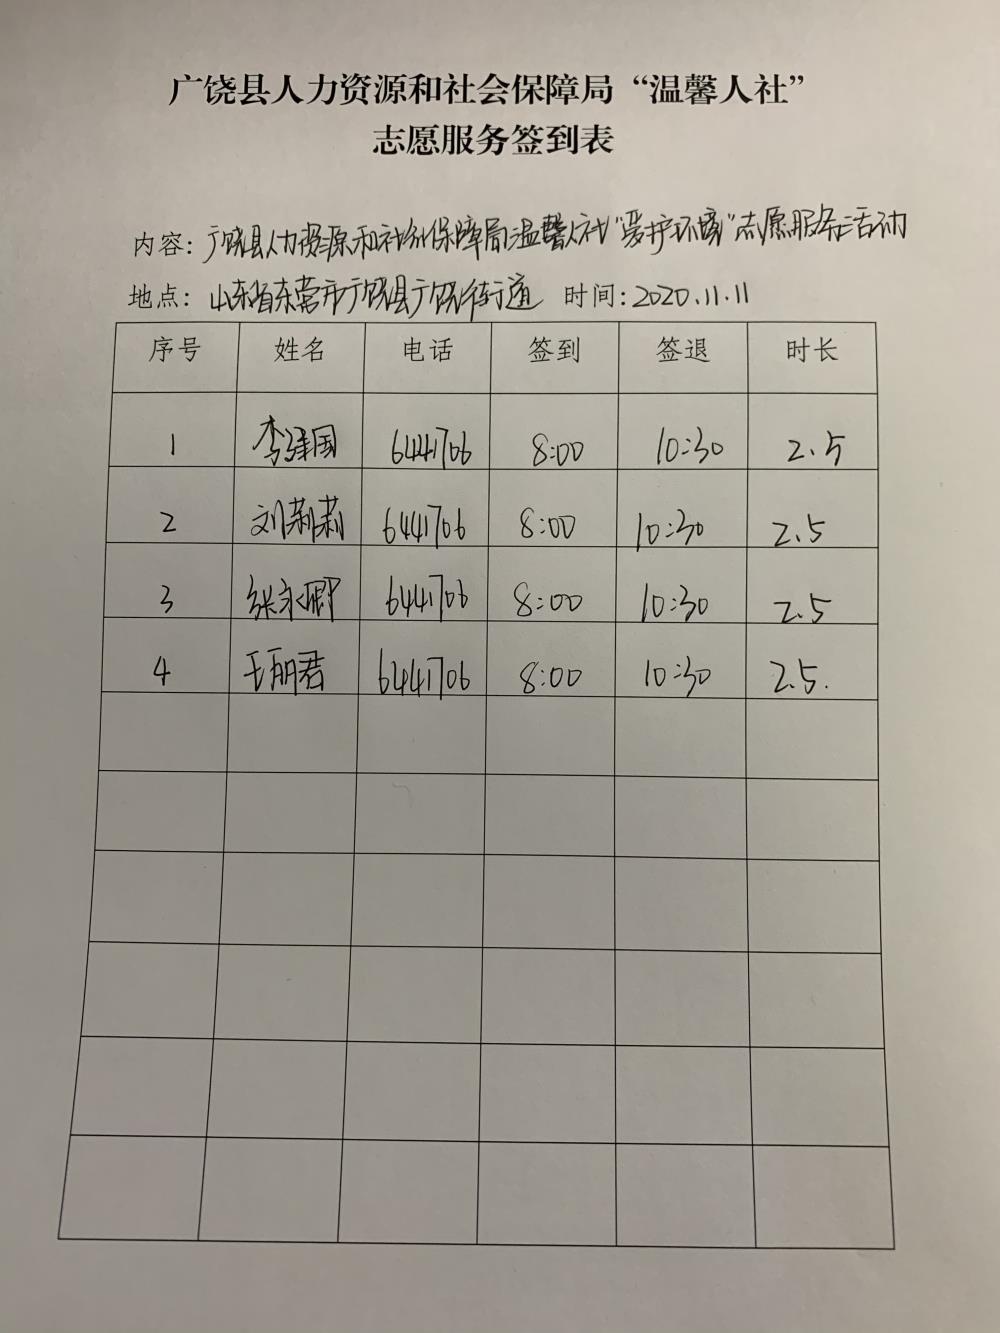 广饶县人力资源和社会保障局“温馨人社”
志愿服务签到表
内容：广饶县人力资源和社会保障局温馨人社“爱护环境”志愿服务活动
地点：山东省东营市广饶县广饶街道 时间：2020.11.11
序号 姓名 电话 签到 签退 时长
1 李建国 6441706 8:00 10:30 2.5
2 刘莉莉 6441706 8:00 10:30 2.5
3 张永卿 6441706 8:00 10:30 2.5
4 王丽君 6441706 8:00 10:30 2.5.